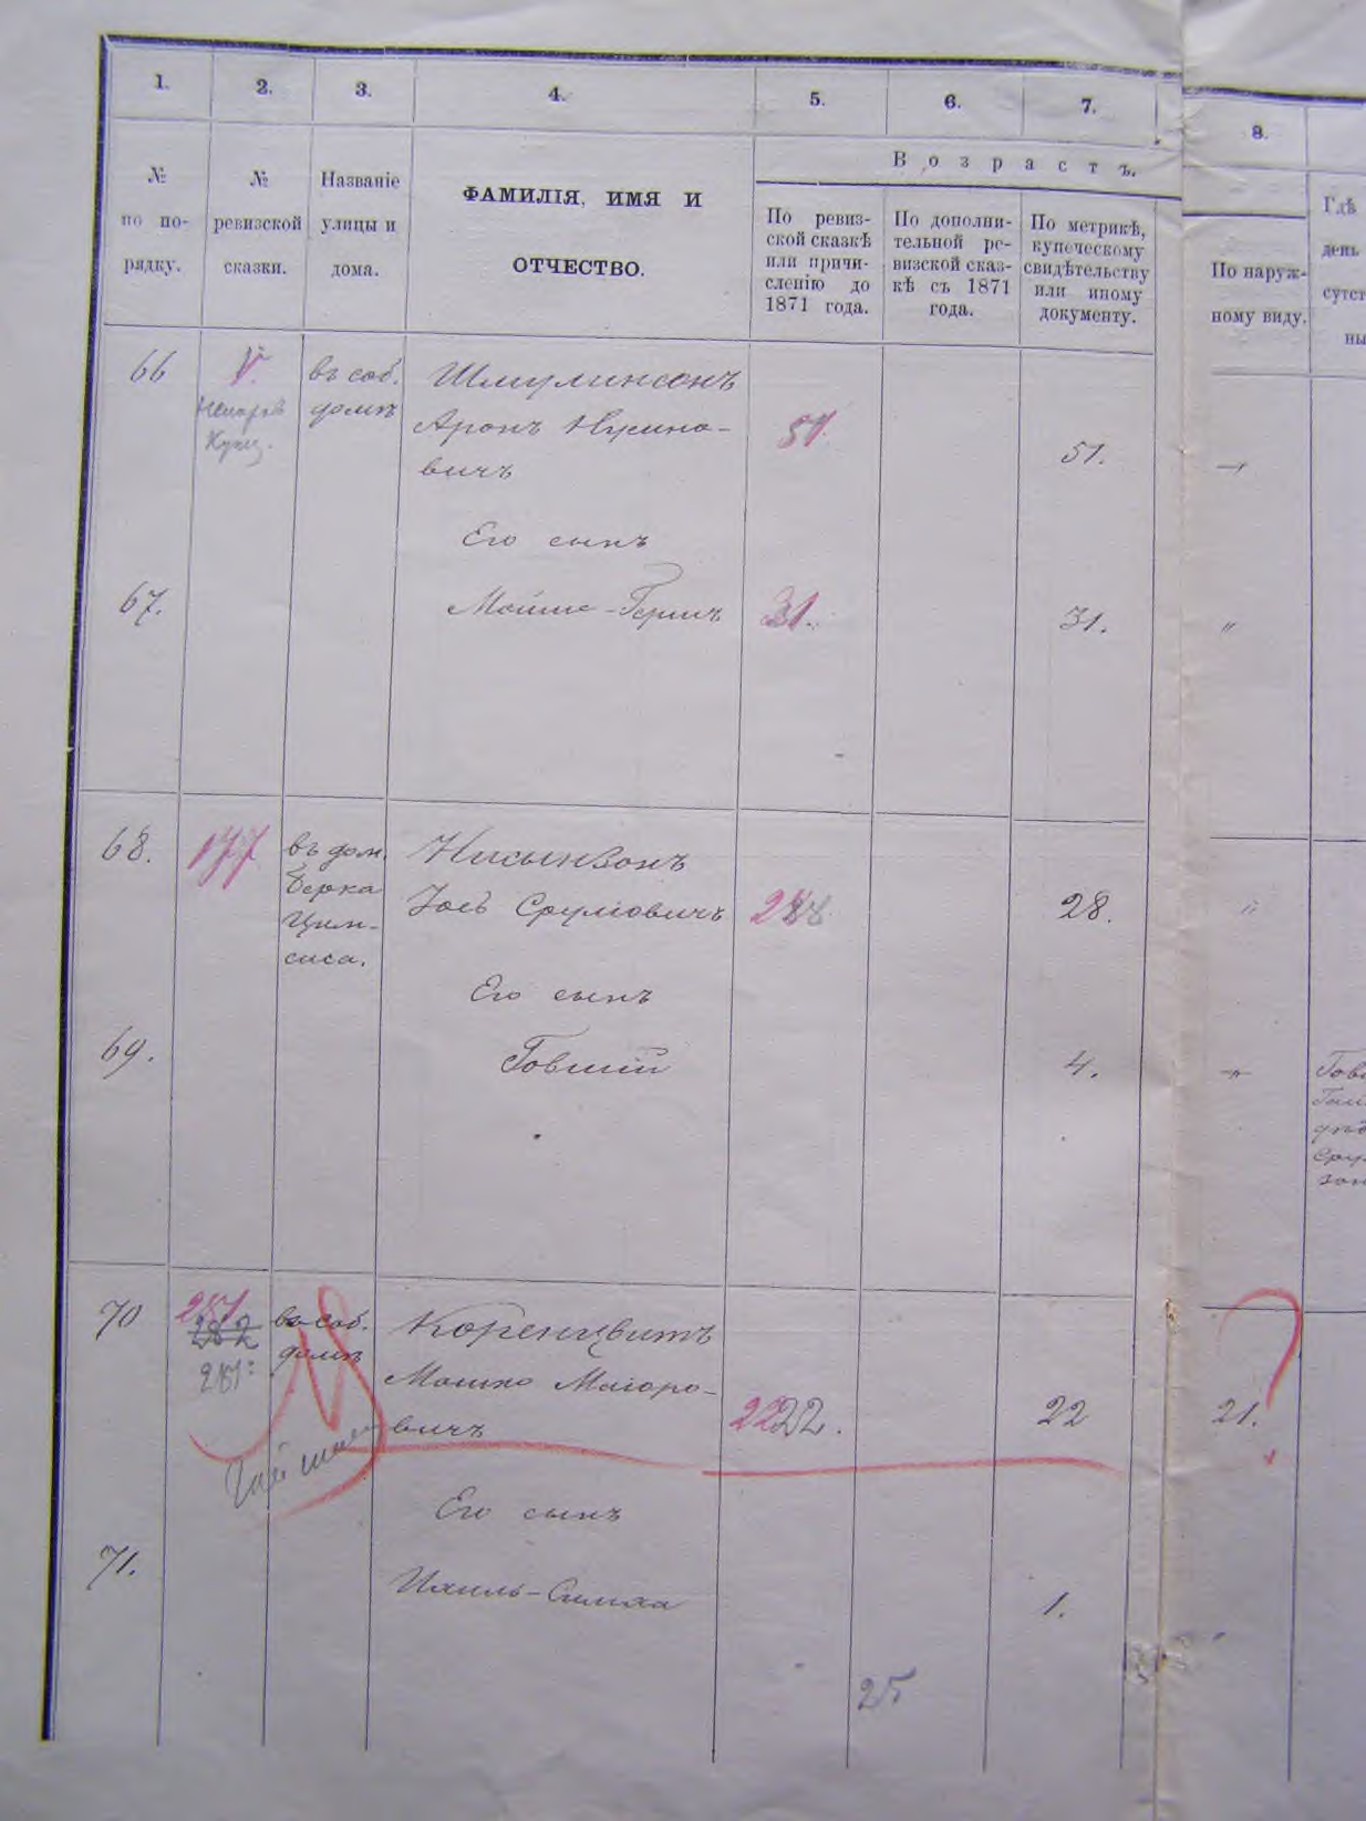 1. 2. 3. 4. 5. 6. 7. 8.
№
по по-
рядку.
№
ревизской
сказки.
Названіе
улицы и
дома.
ФАМИЛІЯ, ИМЯ И
ОТЧЕСТВО.
Возрастъ.
По ревиз-
ской сказкѣ
или причи-
сленію до
1871 года.
По дополни-
тельной ре-
визской сказ-
кѣ съ 1871
года.
По метрикѣ,
купеческому
свидѣтельству
или иному
документу.
По наруж-
ному виду.
Гдѣ
день
сутст
ны
66
въ соб.
домѣ
Шмулинсонъ
Аронъ Нусино-
вичъ
51.
51.
Его сынъ
67.
Мойше-Гершъ
31.
31.
"
68.
177
въ дом.
Берка
Цим-
сиса.
Нисынзонъ
Іось Сруліовичъ
28
28.
"
Его сынъ
69.
Говшій
4.
70
281
282
281:
въ соб.
домѣ
Коренцвитъ
Мошко Маіоро-
вичъ
22
22.
22
21.
?
Его сынъ
71.
Ихиль-Симха
1.
25